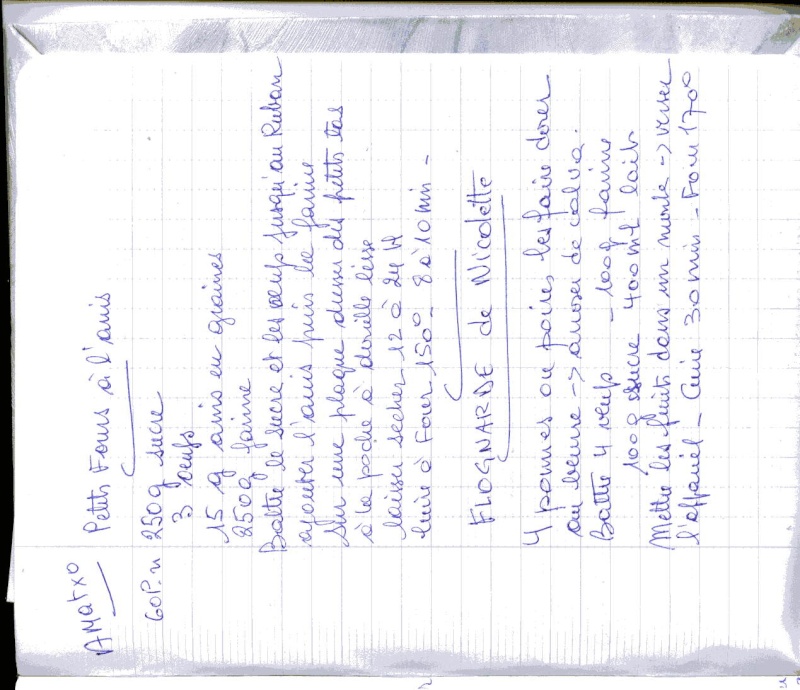 AMatxo Petits Fours à l'anis
60P.n 250g sucre
3 oeufs
15 g anis en graines
250g farine
Battre le sucre et les oeufs jusqu'au Ruban
ajouter l'anis puis la farine
Sur une plaque dresser des petits tas
à la poche à douille lisse
laisser sécher 12 à 24 H
cuire à Four 150° - 8 à 10 min -
FLOGNARDE de Nicolette
4 pommes ou poires, les faire dorer
au beurre -> arroser de calva.
Battre 4 oeufs - 100g farine
100g sucre 400ml lait
Mettre les fruits dans un moule -> verser
l'appareil - Cuire 30 min - Four 170°